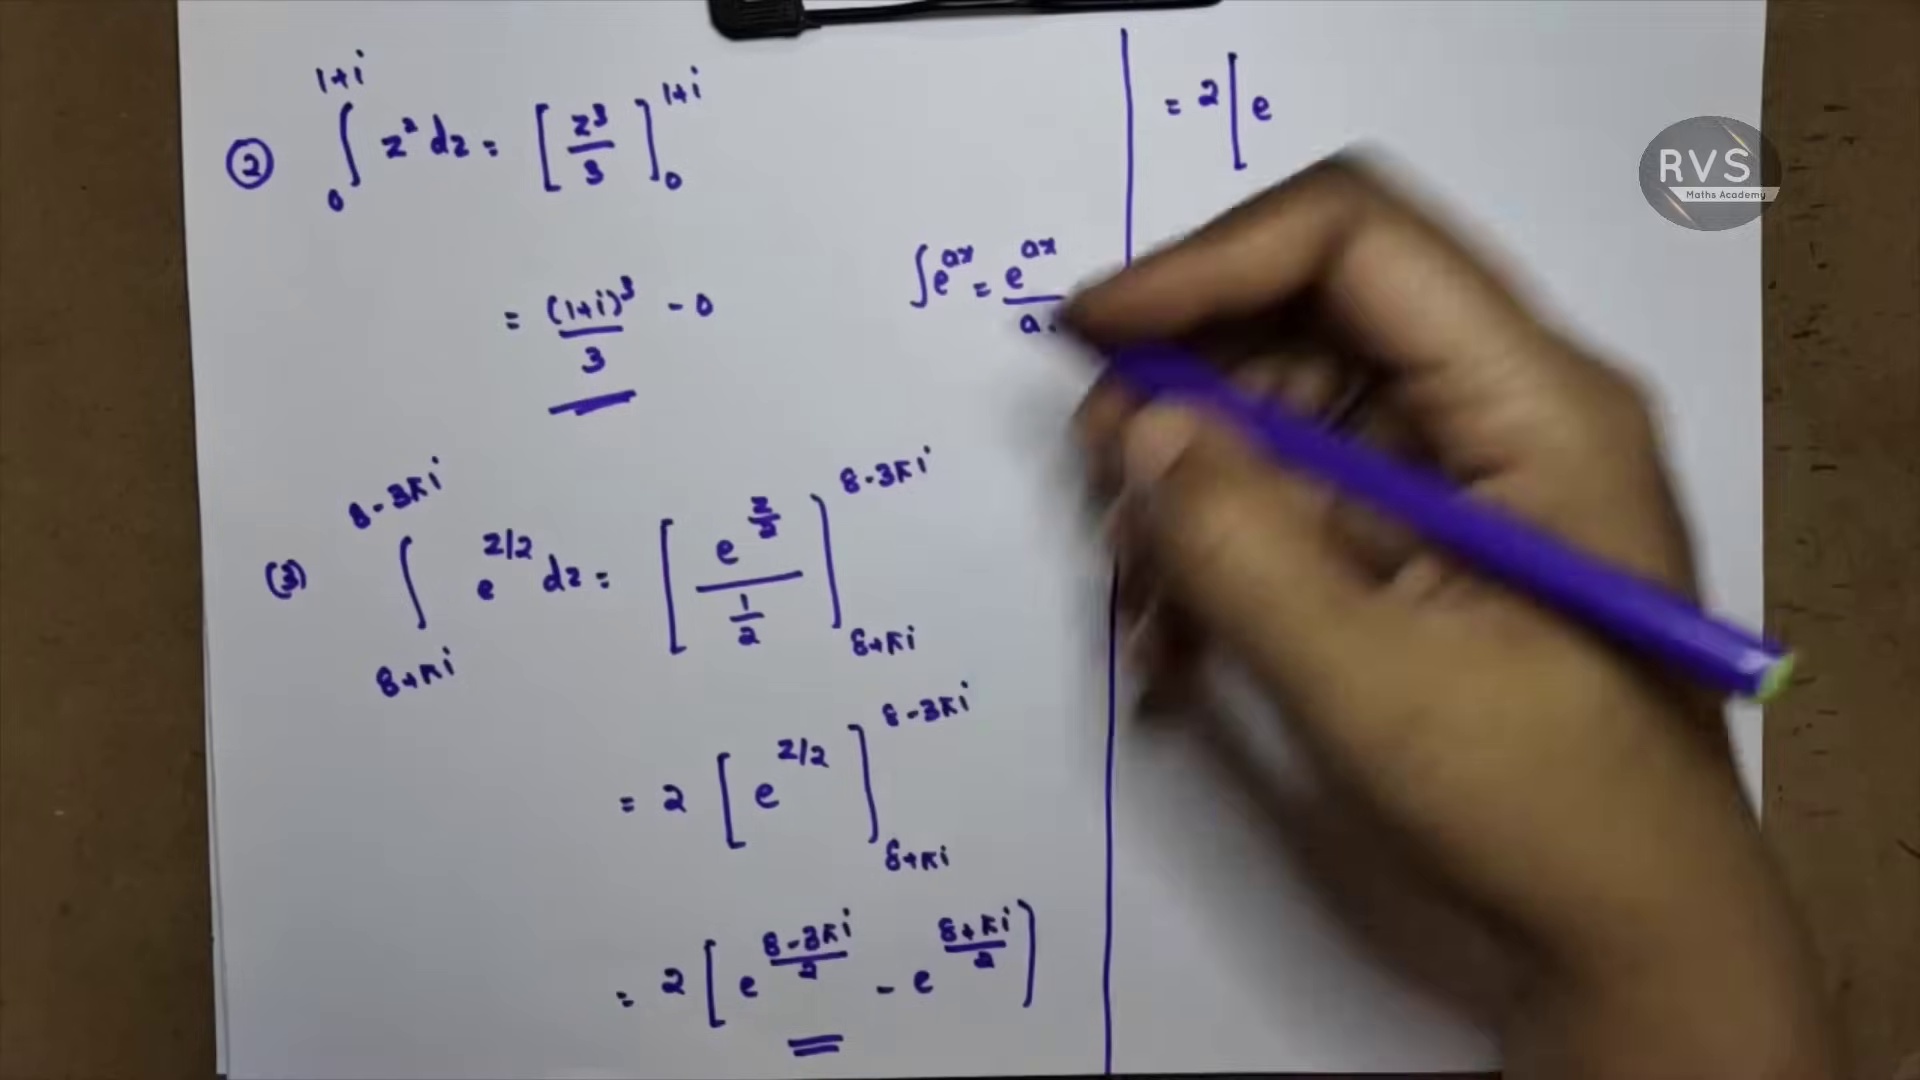 ② ∫₀^{1+i} z² dz = [z³/3]₀^{1+i}
= (1+i)³/3 - 0
∫e^{ax} = e^{ax}/a.
(3) ∫_{8+πi}^{8-3πi} e^{z/2} dz = [e^{z/2}/(1/2)]_{8+πi}^{8-3πi}
= 2 [e^{z/2}]_{8+πi}^{8-3πi}
= 2 [e^{(8-3πi)/2} - e^{(8+πi)/2}]
= 2 [e
RVS
Maths Academy